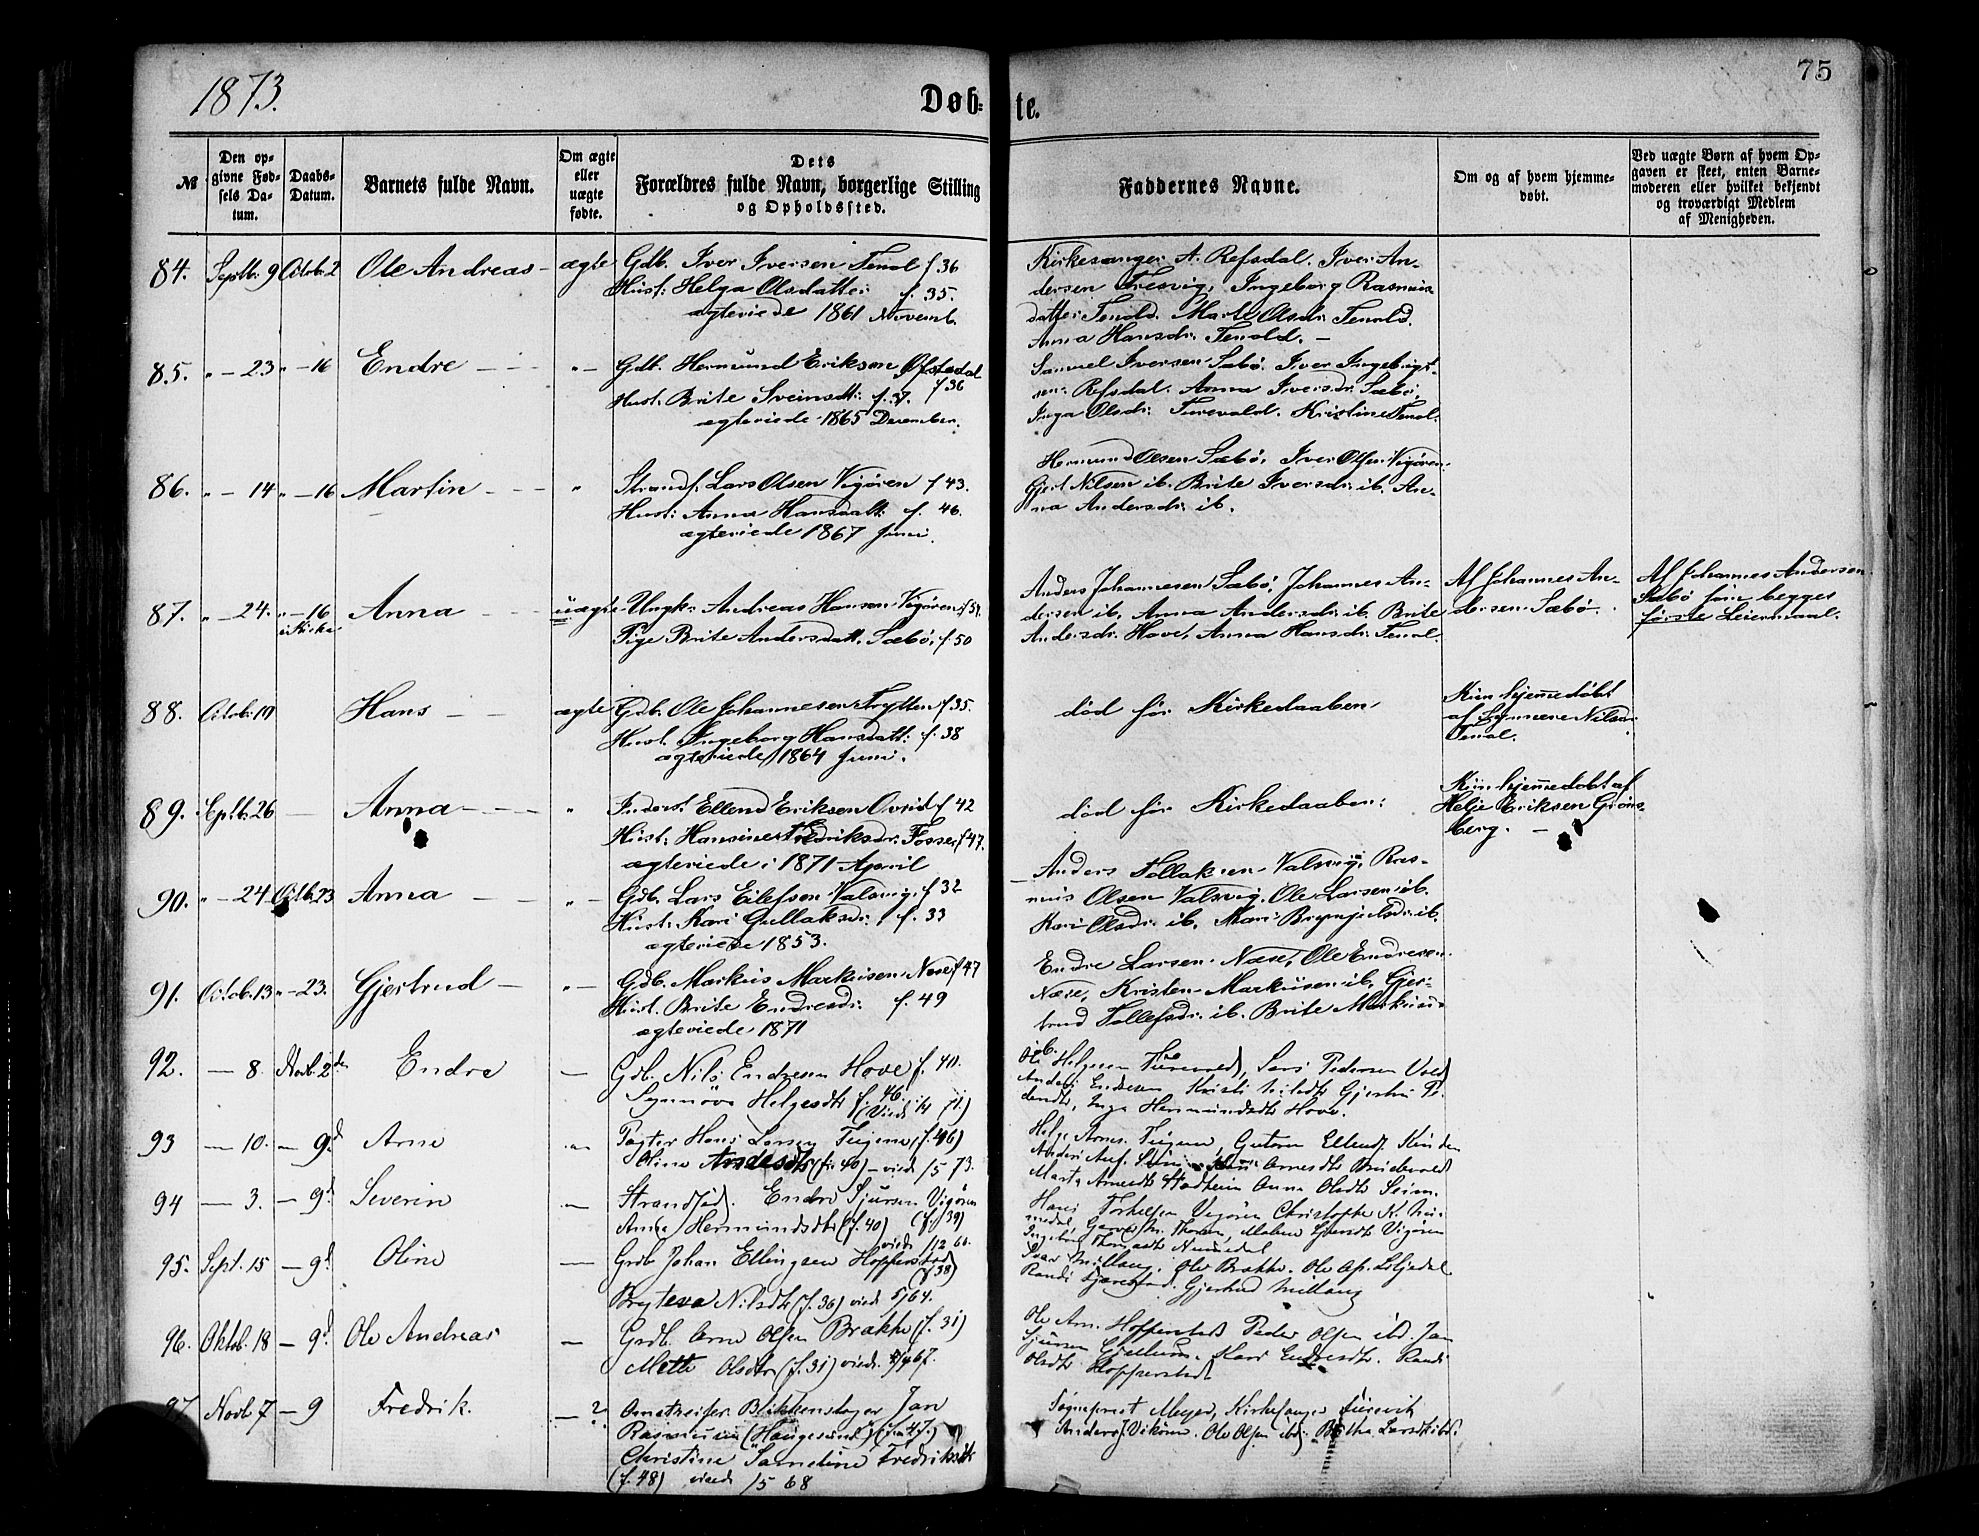 1873.
Døb-
te.
75
№
Den op-
givne Fød-
sels Da-
tum.
Daabs-
Datum.
Barnets fulde Navn.
Om ægte
eller
uægte
fødte.
Dets
Forældres fulde Navn, borgerlige Stilling
og Opholdssted.
Faddernes Navne.
Om og af hvem hjemme-
døbt.
Ved uægte Børn af hvem Op-
gaven er skeet, enten Barne-
moderen eller hvilket bekjendt
og troværdigt Medlem
af Menigheden.
84. Septb: 9 Octob: 2 Ole Andreas - ægte Gdb. Iver Iversen Tenol f. 36
Hust: Helga Olsdatter f. 35.
ægteviede 1861 Novemb.
Kirkesanger A. Refsdal. Iver An-
dersen Tresvig, Ingeborg Rasmus
datter Tenold. Marte Olsdr. Tenold.
Anna Hansdr. Tenold. -
85. " - 23 " - 16 Endre - - - " - Gdb. Hermund Eriksen Øfstedal
f 36
Hust: Brite Sveinsdt: f. 37.
ægteviede 1865 December.
Samuel Iversen Sæbø. Iver Ingebrigt-
sen Refsdal. Anna Iversdr. Sæbø.
Inga Olsdr: Turevold. Kristine Tenol.
86. " - 14 " - 16 Martin - - - " Strands. Lars Olsen Vigøren f 43.
Hust: Anna Hansdatt: f. 46.
ægteviede 1867 Juni.
Hermund Olsen Sæbø, Iver Olsen Vigøren.
Gjert Nilsen ib. Brite Iversdr. ib. An-
na Andersdr. ib.
87. " - 24. " - 16 Anna - - - uægte Ungk: Andreas Hansen Vigøren f 51.
i Kirke
Pige Brite Andersdatt. Sæbø, f. 50
Anders Johannesen Sæbø, Johannes An-
dersen ib, Anna Andersdr. ib. Brite
Andersdr. Hove, Anna Hansdr. Tenol.
Af Johannes An-
dersen Sæbø.
Af Johannes Andersen
Sæbø som begges
første Leiermaal.
88. Octob: 19 Hans - - ægte Gdb. Ole Johannesen Trytten f. 35.
Hust. Ingeborg Hansdatt: f. 38
ægteviede 1864 Juni.
død før Kirkedaaben
Kun hjemmedøbt
af Synneve Nilsdr.
Tenol.
89. Septb: 26 - Anna - - - " Inderst. Ellend Eriksen Ovrid f 42
Hust: Hansine Fredriksdr: Fosse f 47.
ægteviede i 1871 April
død før Kirkedaaben:
Kun hjemmedøbt af
Helje Eriksen Grøns-
berg. -
90. " - 24 Octb. 23 Anna - - " - Gdb. Lars Eilefsen Valsvig. f 32
Hust: Kari Gullaksdr: f. 33
ægteviede 1853.
Anders Tollaksen Valsvig, Ras-
mus Olsen Valsvig. Ole Larsen ib.
Kari Olsdr. ib. Mari Brynjulsdr. ib.
91. Octob: 13 " - 23. Gjertrud - " - Gdb. Markus Markusen Næse f 47
Hust. Brite Endresdr. f. 49
ægteviede 1871
Endre Larsen Næse, Ole Endresen
Næse, Kristen Markusen ib, Gjer-
trud Tollefsdr. ib. Brite Markusdr
ib.
92. - 8. Novb. 2den Endre - Gdb. Nils Endresen Hove f. 40.
Synnøve Helgesdtr f. 46.
(Viede 14 71.)
Ole Helgesen Turevold, Lars Pedersen Vold
Anders Endresen
Inga Hermundsdtr Hove.
93 - 10. - 9d Arne Pagter Hans Larsen Feigum, (f. 46)
Oline Arnesdtr (f. 40) - viede 15 73.
Helge Arnes. Feigum, Guttorm Ellends. Kinden
Marta Arnesdtr Hadheim Anna Olsdtr Seim.
94 - 3. - 9d Severin - Strandsid. Endre Sjursen Vigøren
(f. 39)
Anna Hermundsdtr (f. 40)
viede 12 60.
Hans Torkelsen Vigøren Christopher
Ingeborg Thomasdtr Numedal
95. Sept. 15 - 9d Oline - Grdb Johan Ellingsen Hopperstad
(f 38)
Bryteva Nilsdtr (f. 36) viede 5/64.
Ivar Millang, Ole Brække.
Gjertrud Millang
96. Oktob. 18 - 9d Ole Andreas - Grdb. Arne Olsen Brække (f. 31)
Mette Olsdtr (f. 31) viede 67.
Ole Arn. Hopperstad Peder Olsen ibd. Jan
Sjursen Endresdtr. Randi
Olsdtr Hopperstad
97. Novb 7 - 9 Fredrik. - ? Blikkenslager Jan
Rasmussen (Haugesund) (f. 47.)
Christine Sameline Fredriksdtr
(f. 48) viede 15 68
Sogneprest Meyer, Kirkesanger Turevik
Anders J. Vikøren. Ole Olsen ibd. Bertha Larsdtr ibd.